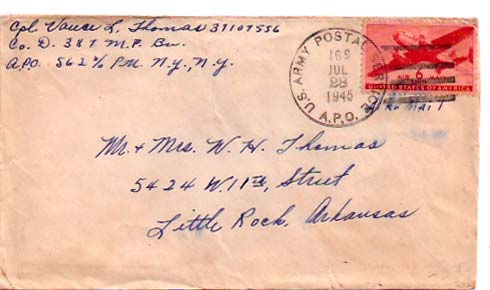 Cpl. Vance L. Thomas 37107556
Co. D. 387 M.P. Bn.
A.P.O. 562 % P.M. N.Y., N.Y.
U.S. ARMY POSTAL SERVICE
168
JUL
28
1945
A.P.O.
AIR 6 MAIL
UNITED STATES OF AMERICA
Air Mail
Mr. + Mrs. W. H. Thomas
5424 W. 11th, Street
Little Rock, Arkansas